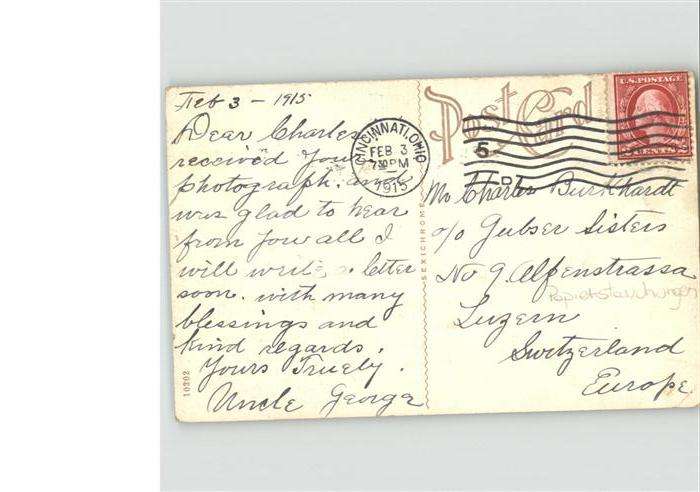 Feb 3 - 1915
Dear Charles
received your
photograph. and
was glad to hear
from you all I
will write a letter
soon. with many
blessings and
kind regards.
Yours Truely.
Uncle George
10202
SEXICHROME
Post Card
CINCINNATI, OHIO
FEB 3
730 PM
1915
5
U.S. POSTAGE
2 CENTS 2
Mr Charles Burkhardt
c/o Gubser Sisters
No 9. Alpenstrassa
Luzern
Switzerland
Europe.